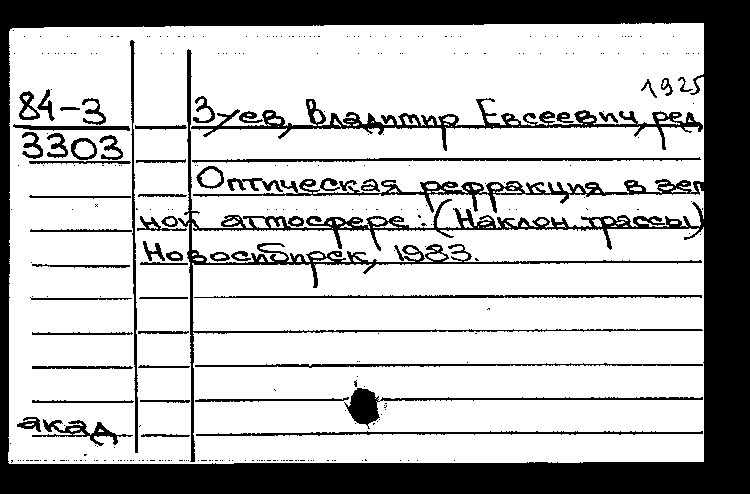 1925
84-3
Зуев, Владимир Евсеевич, ред
3303
Оптическая рефракция в зем
ной атмосфере: (Наклон. трассы)
Новосибирск, 1983.
акад